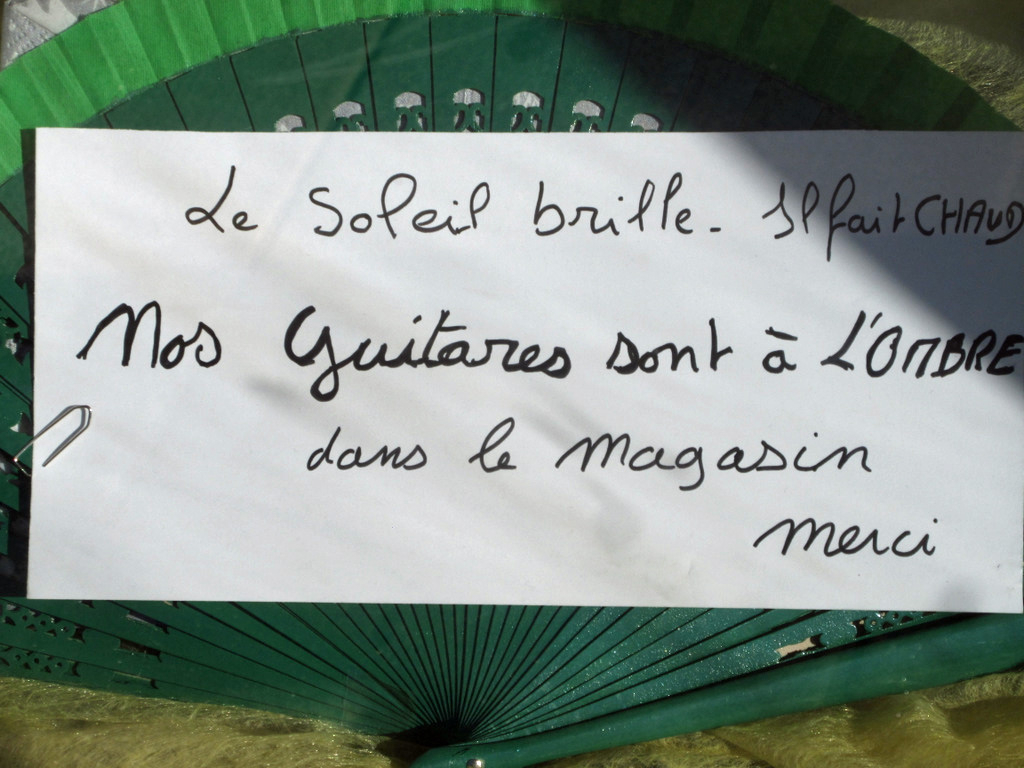 Le Soleil brille. Il fait CHAUD
Nos Guitares sont à L'OMBRE
dans le magasin
merci